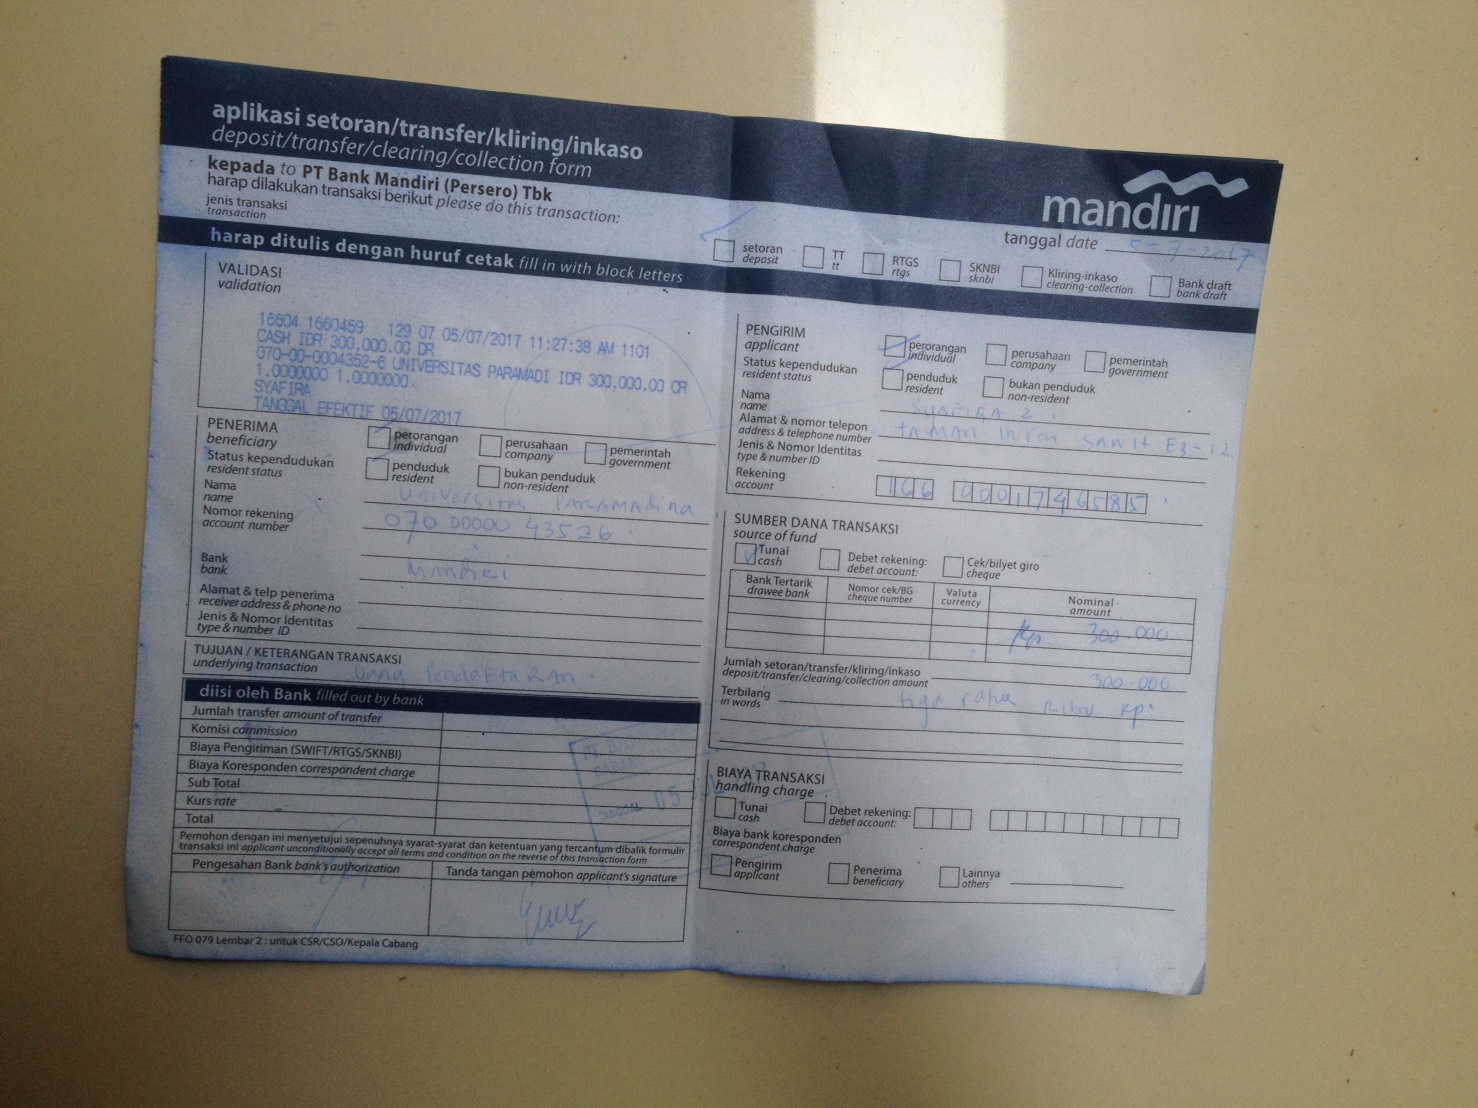 aplikasi setoran/transfer/kliring/inkaso
deposit/transfer/clearing/collection form
kepada to PT Bank Mandiri (Persero) Tbk
harap dilakukan transaksi berikut please do this transaction:
mandiri
tanggal date 5-7-2017
jenis transaksi
transaction
setoran
deposit
TT
tt
RTGS
rtgs
SKNBI
sknbi
Kliring-inkaso
clearing-collection
Bank draft
bank draft
harap ditulis dengan huruf cetak fill in with block letters
VALIDASI
validation
16604 1660459 129 07 05/07/2017 11:27:38 AM 1101
CASH IDR 300,000.00 DR
070-00-0004352-6 UNIVERSITAS PARAMADI IDR 300,000.00 CR
1.0000000 1.0000000
SYAFIRA
TANGGAL EFEKTIF 05/07/2017
PENERIMA
beneficiary
perorangan
individual
perusahaan
company
pemerintah
government
Status kependudukan
resident status
penduduk
resident
bukan penduduk
non-resident
Nama
name
Universitas PARAMADINA
Nomor rekening
account number
070 00000 43526
Bank
bank
Mandiri
Alamat & telp penerima
receiver address & phone no
Jenis & Nomor Identitas
type & number ID
TUJUAN / KETERANGAN TRANSAKSI
underlying transaction
Uang Pendaftaran
diisi oleh Bank filled out by bank
Jumlah transfer amount of transfer
Komisi commission
Biaya Pengiriman (SWIFT/RTGS/SKNBI)
Biaya Koresponden correspondent charge
Sub Total
Kurs rate
Total
Pemohon dengan ini menyetujui sepenuhnya syarat-syarat dan ketentuan yang tercantum dibalik formulir
transaksi ini applicant unconditionally accept all terms and condition on the reverse of this transaction form
Pengesahan Bank bank's authorization
Tanda tangan pemohon applicant's signature
FFO 079 Lembar 2 : untuk CSR/CSO/Kepala Cabang
PENGIRIM
applicant
perorangan
individual
perusahaan
company
pemerintah
government
Status kependudukan
resident status
penduduk
resident
bukan penduduk
non-resident
Nama
name
SYAFIRA Z
Alamat & nomor telepon
address & telephone number
TAMAN Duren SAWIT E3-12
Jenis & Nomor Identitas
type & number ID
Rekening
account
166 0001746585
SUMBER DANA TRANSAKSI
source of fund
Tunai
cash
Debet rekening:
debet account:
Cek/bilyet giro
cheque
Bank Tertarik
drawee bank
Nomor cek/BG
cheque number
Valuta
currency
Nominal
amount
Rp 300.000
Jumlah setoran/transfer/kliring/inkaso
deposit/transfer/clearing/collection amount
300.000
Terbilang
in words
tiga ratus Ribu Rp
BIAYA TRANSAKSI
handling charge
Tunai
cash
Debet rekening:
debet account:
Biaya bank koresponden
correspondent charge
Pengirim
applicant
Penerima
beneficiary
Lainnya
others